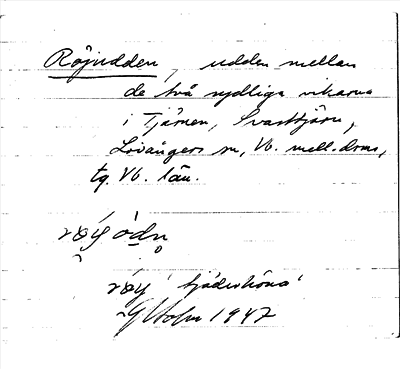 Röjudden, udden mellan
de två sydliga vikarna
i Tjärnen, Svarttjärn,
Lövångers sn, Vb. mell. doms,
tg. Vb. län.
røy òdn
røy 'tjäderhöna'
1947